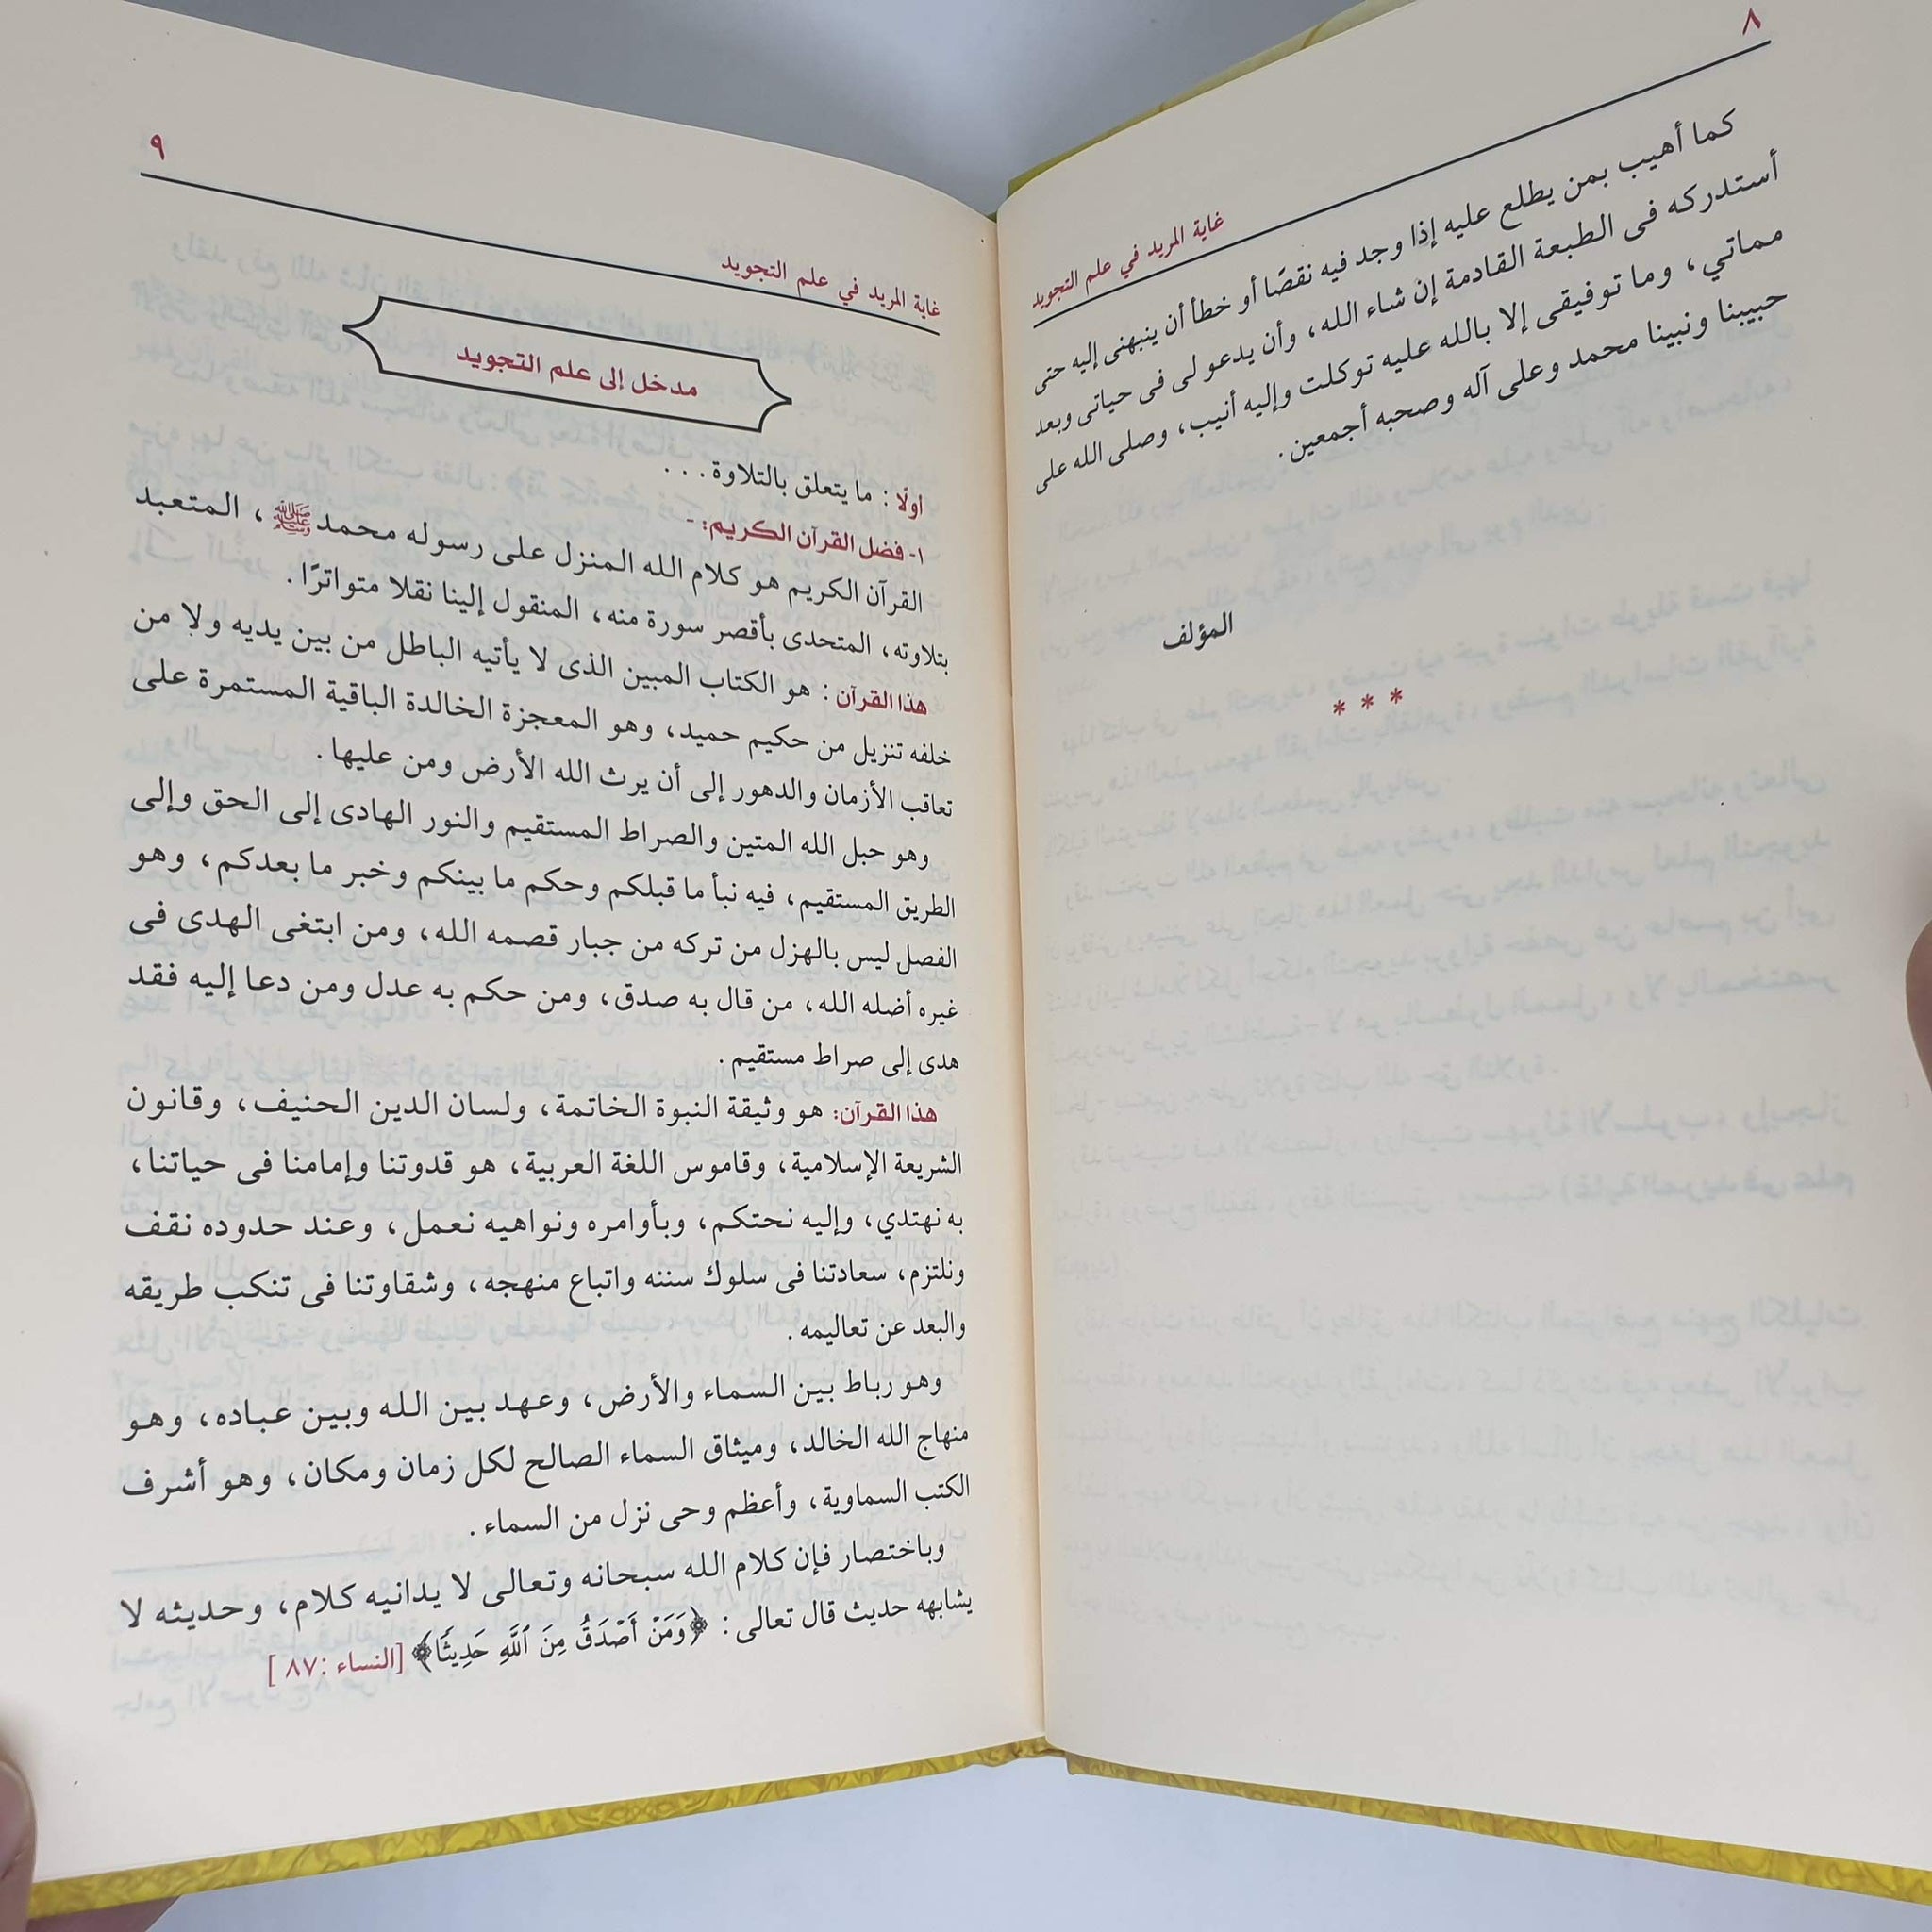 ٨
غاية المريد في علم التجويد
كما أهيب بمن يطلع عليه إذا وجد فيه نقصًا أو خطأ أن ينبهنى إليه حتى
أستدركه فى الطبعة القادمة إن شاء الله، وأن يدعو لى فى حياتى وبعد
مماتي، وما توفيقى إلا بالله عليه توكلت وإليه أنيب، وصلى الله على
حبيبنا ونبينا محمد وعلى آله وصحبه أجمعين.
المؤلف
* * *
٩
غاية المريد في علم التجويد
مدخل إلى علم التجويد
اولًا: ما يتعلق بالتلاوة...
١- فضل القرآن الكريم: -
القرآن الكريم هو كلام الله المنزل على رسوله محمد ﷺ، المتعبد
بتلاوته، المتحدى بأقصر سورة منه، المنقول إلينا نقلا متواترًا.
هذا القرآن: هو الكتاب المبين الذى لا يأتيه الباطل من بين يديه ولا من
خلفه تنزيل من حكيم حميد، وهو المعجزة الخالدة الباقية المستمرة على
تعاقب الأزمان والدهور إلى أن يرث الله الأرض ومن عليها.
وهو حبل الله المتين والصراط المستقيم والنور الهادى إلى الحق وإلى
الطريق المستقيم، فيه نبأ ما قبلكم وحكم ما بينكم وخبر ما بعدكم، وهو
الفصل ليس بالهزل من تركه من جبار قصمه الله، ومن ابتغى الهدى فى
غيره أضله الله، من قال به صدق، ومن حكم به عدل ومن دعا إليه فقد
هدى إلى صراط مستقيم.
هذا القرآن: هو وثيقة النبوة الخاتمة، ولسان الدين الحنيف، وقانون
الشريعة الإسلامية، وقاموس اللغة العربية، هو قدوتنا وإمامنا فى حياتنا،
به نهتدي، وإليه نحتكم، وبأوامره ونواهيه نعمل، وعند حدوده نقف
ونلتزم، سعادتنا فى سلوك سننه واتباع منهجه، وشقاوتنا فى تنكب طريقه
والبعد عن تعاليمه.
وهو رباط بين السماء والأرض، وعهد بين الله وبين عباده، وهو
منهاج الله الخالد، وميثاق السماء الصالح لكل زمان ومكان، وهو أشرف
الكتب السماوية، وأعظم وحى نزل من السماء.
وباختصار فإن كلام الله سبحانه وتعالى لا يدانيه كلام، وحديثه لا
يشابهه حديث قال تعالى: ﴿وَمَنْ أَصْدَقُ مِنَ ٱللَّهِ حَدِيثًا﴾ [النساء: ٨٧]